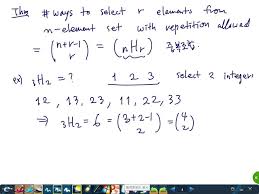 Thm # ways to select r elements from
n-element set with repetition allowed
= (n+r-1 r) = (nHr) 중복조합
ex) 3H2 = ? 1 2 3 select 2 integers
12, 13, 23, 11, 22, 33
⇒ 3H2 = 6 = (3+2-1 2) = (4 2)